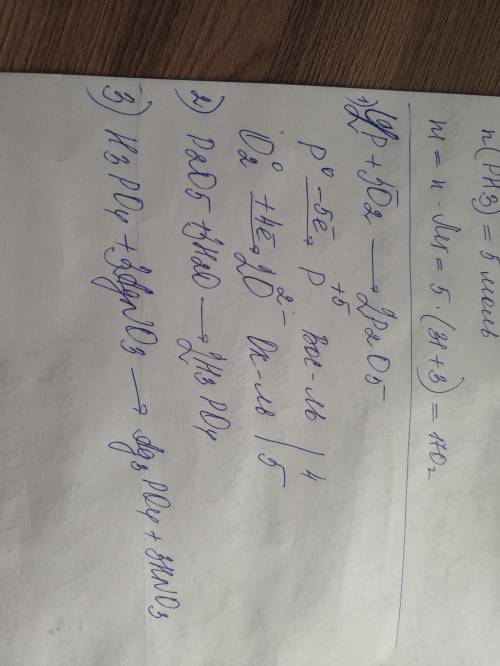 n(PH3) = 5 моль
m = n · M = 5 · (31+3) = 170г
1) 4P + 5O2 → 2P2O5
P⁰ −5ē → P⁺⁵ Вос-ль | 4
O2⁰ +4ē → 2O²⁻ Ок-ль | 5
2) P2O5 + 3H2O → 2H3PO4
3) H3PO4 + 3AgNO3 → Ag3PO4 + 3HNO3